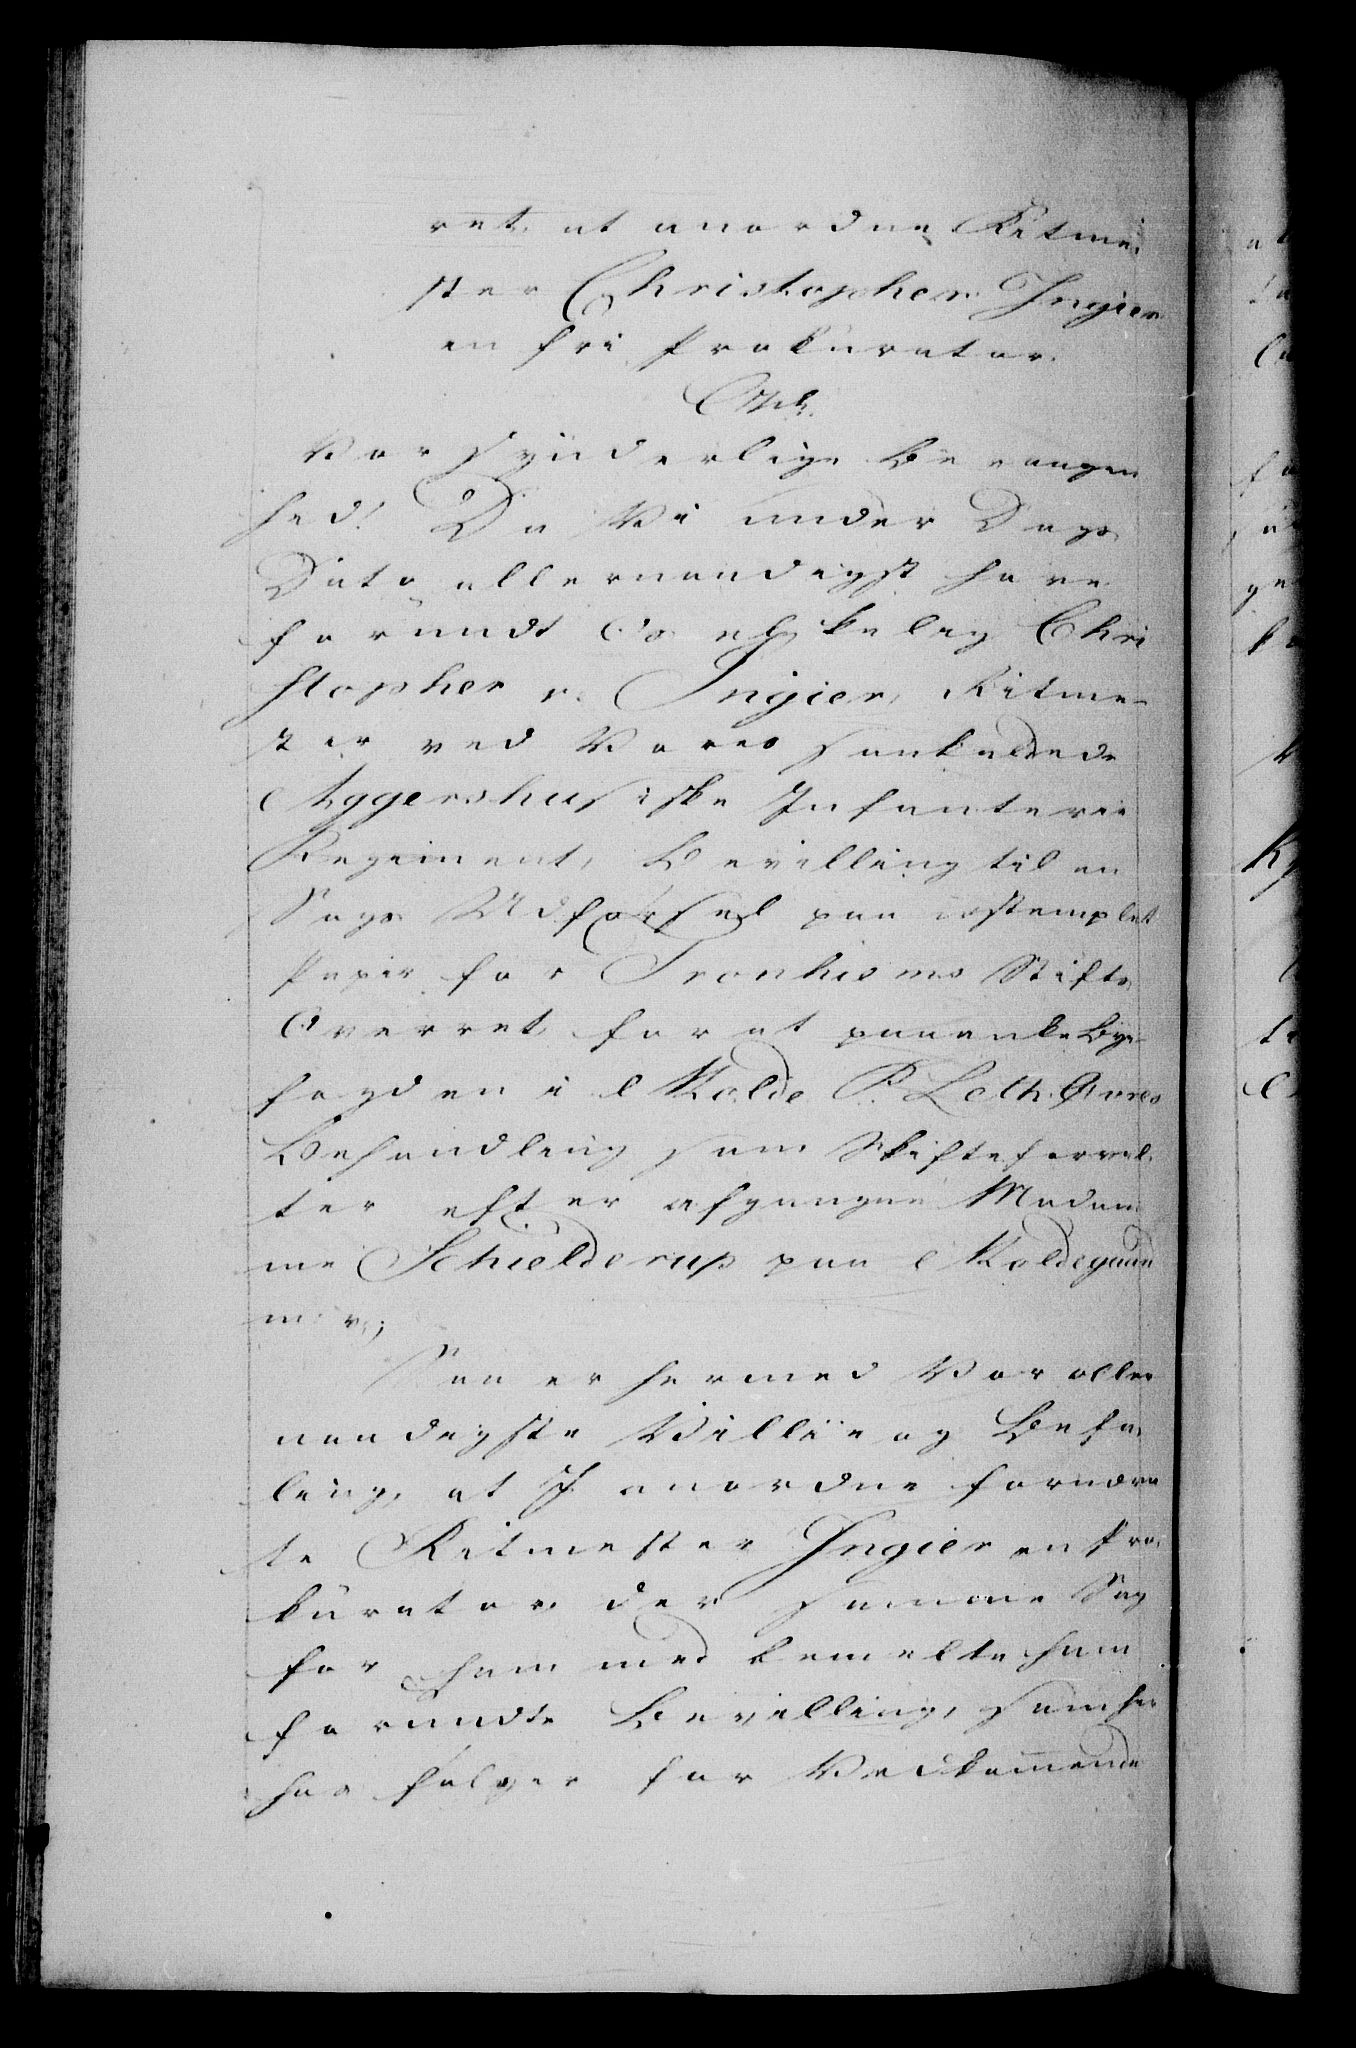 ret, at anordne Ritme¬
ster Christopher Ingier
en fri Prokurator.
Vor synderlige Bevaagen
hed! Da Vi under Dags
Dato allernaadigst have
forundt Os elskelig Chri
stopher v. Ingier, Ritme¬
ster ved Vores sønkaldede
Aggershusiske Infanterie
Regiment, Bevilling til en
Sags Udførsel paa ustemplet
Papir for Tronhiems Stifts
Overret, for at paaanke Bye¬
fogden i Molde P. Leth. Owres
Behandling som Skifteforval¬
ter efter afgangne Madam¬
me Schielderup paa Moldegaard
m: v:;
Saa er hermed Vor aller
naadigste Villie og Befa¬
ling, at I anordne fornævn
te Ritmester Ingier en Pro¬
kurator, der samme Sag
for ham med bemelte ham
forundte Bevilling, som her
hos følger for Vedkommende